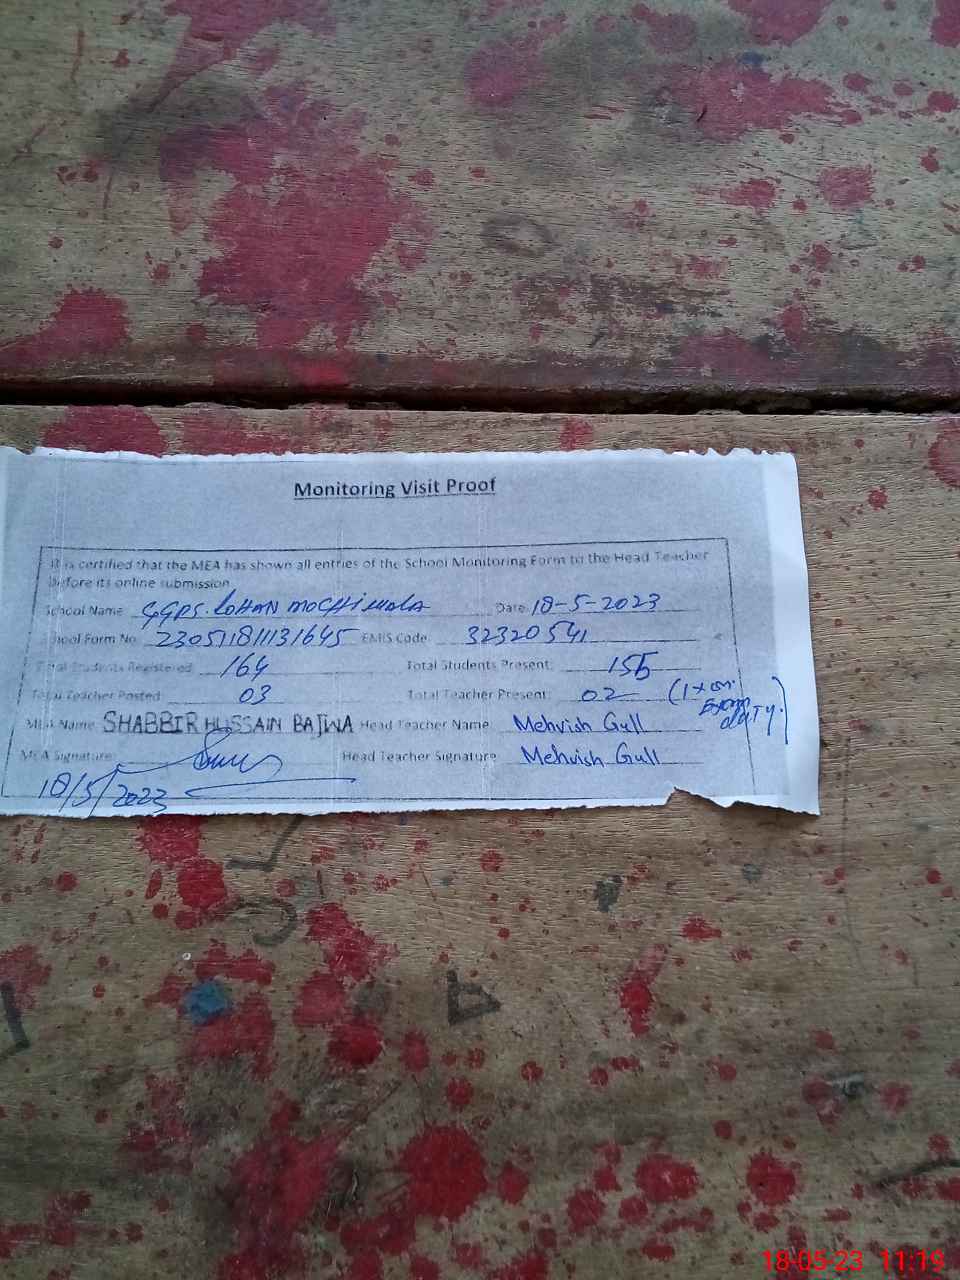 Monitoring Visit Proof
It is certified that the MEA has shown all entries of the School Monitoring Form to the Head Teacher
before its online submission
School Name GGPS. KOHAN MOCHI WALA Date: 18-5-2023
School Form No. 230511811131645 EMIS Code: 32320541
Total Students Registered: 164 Total Students Present: 155
Total Teacher Posted: 03 Total Teacher Present: 02 (1 x on Exam duty.)
MEA Name SHABBIR HUSSAIN BAJWA Head Teacher Name: Mehvish Gull
MEA Signature: Head Teacher Signature Mehvish Gull
18/5/2023
18-05-23 11:19